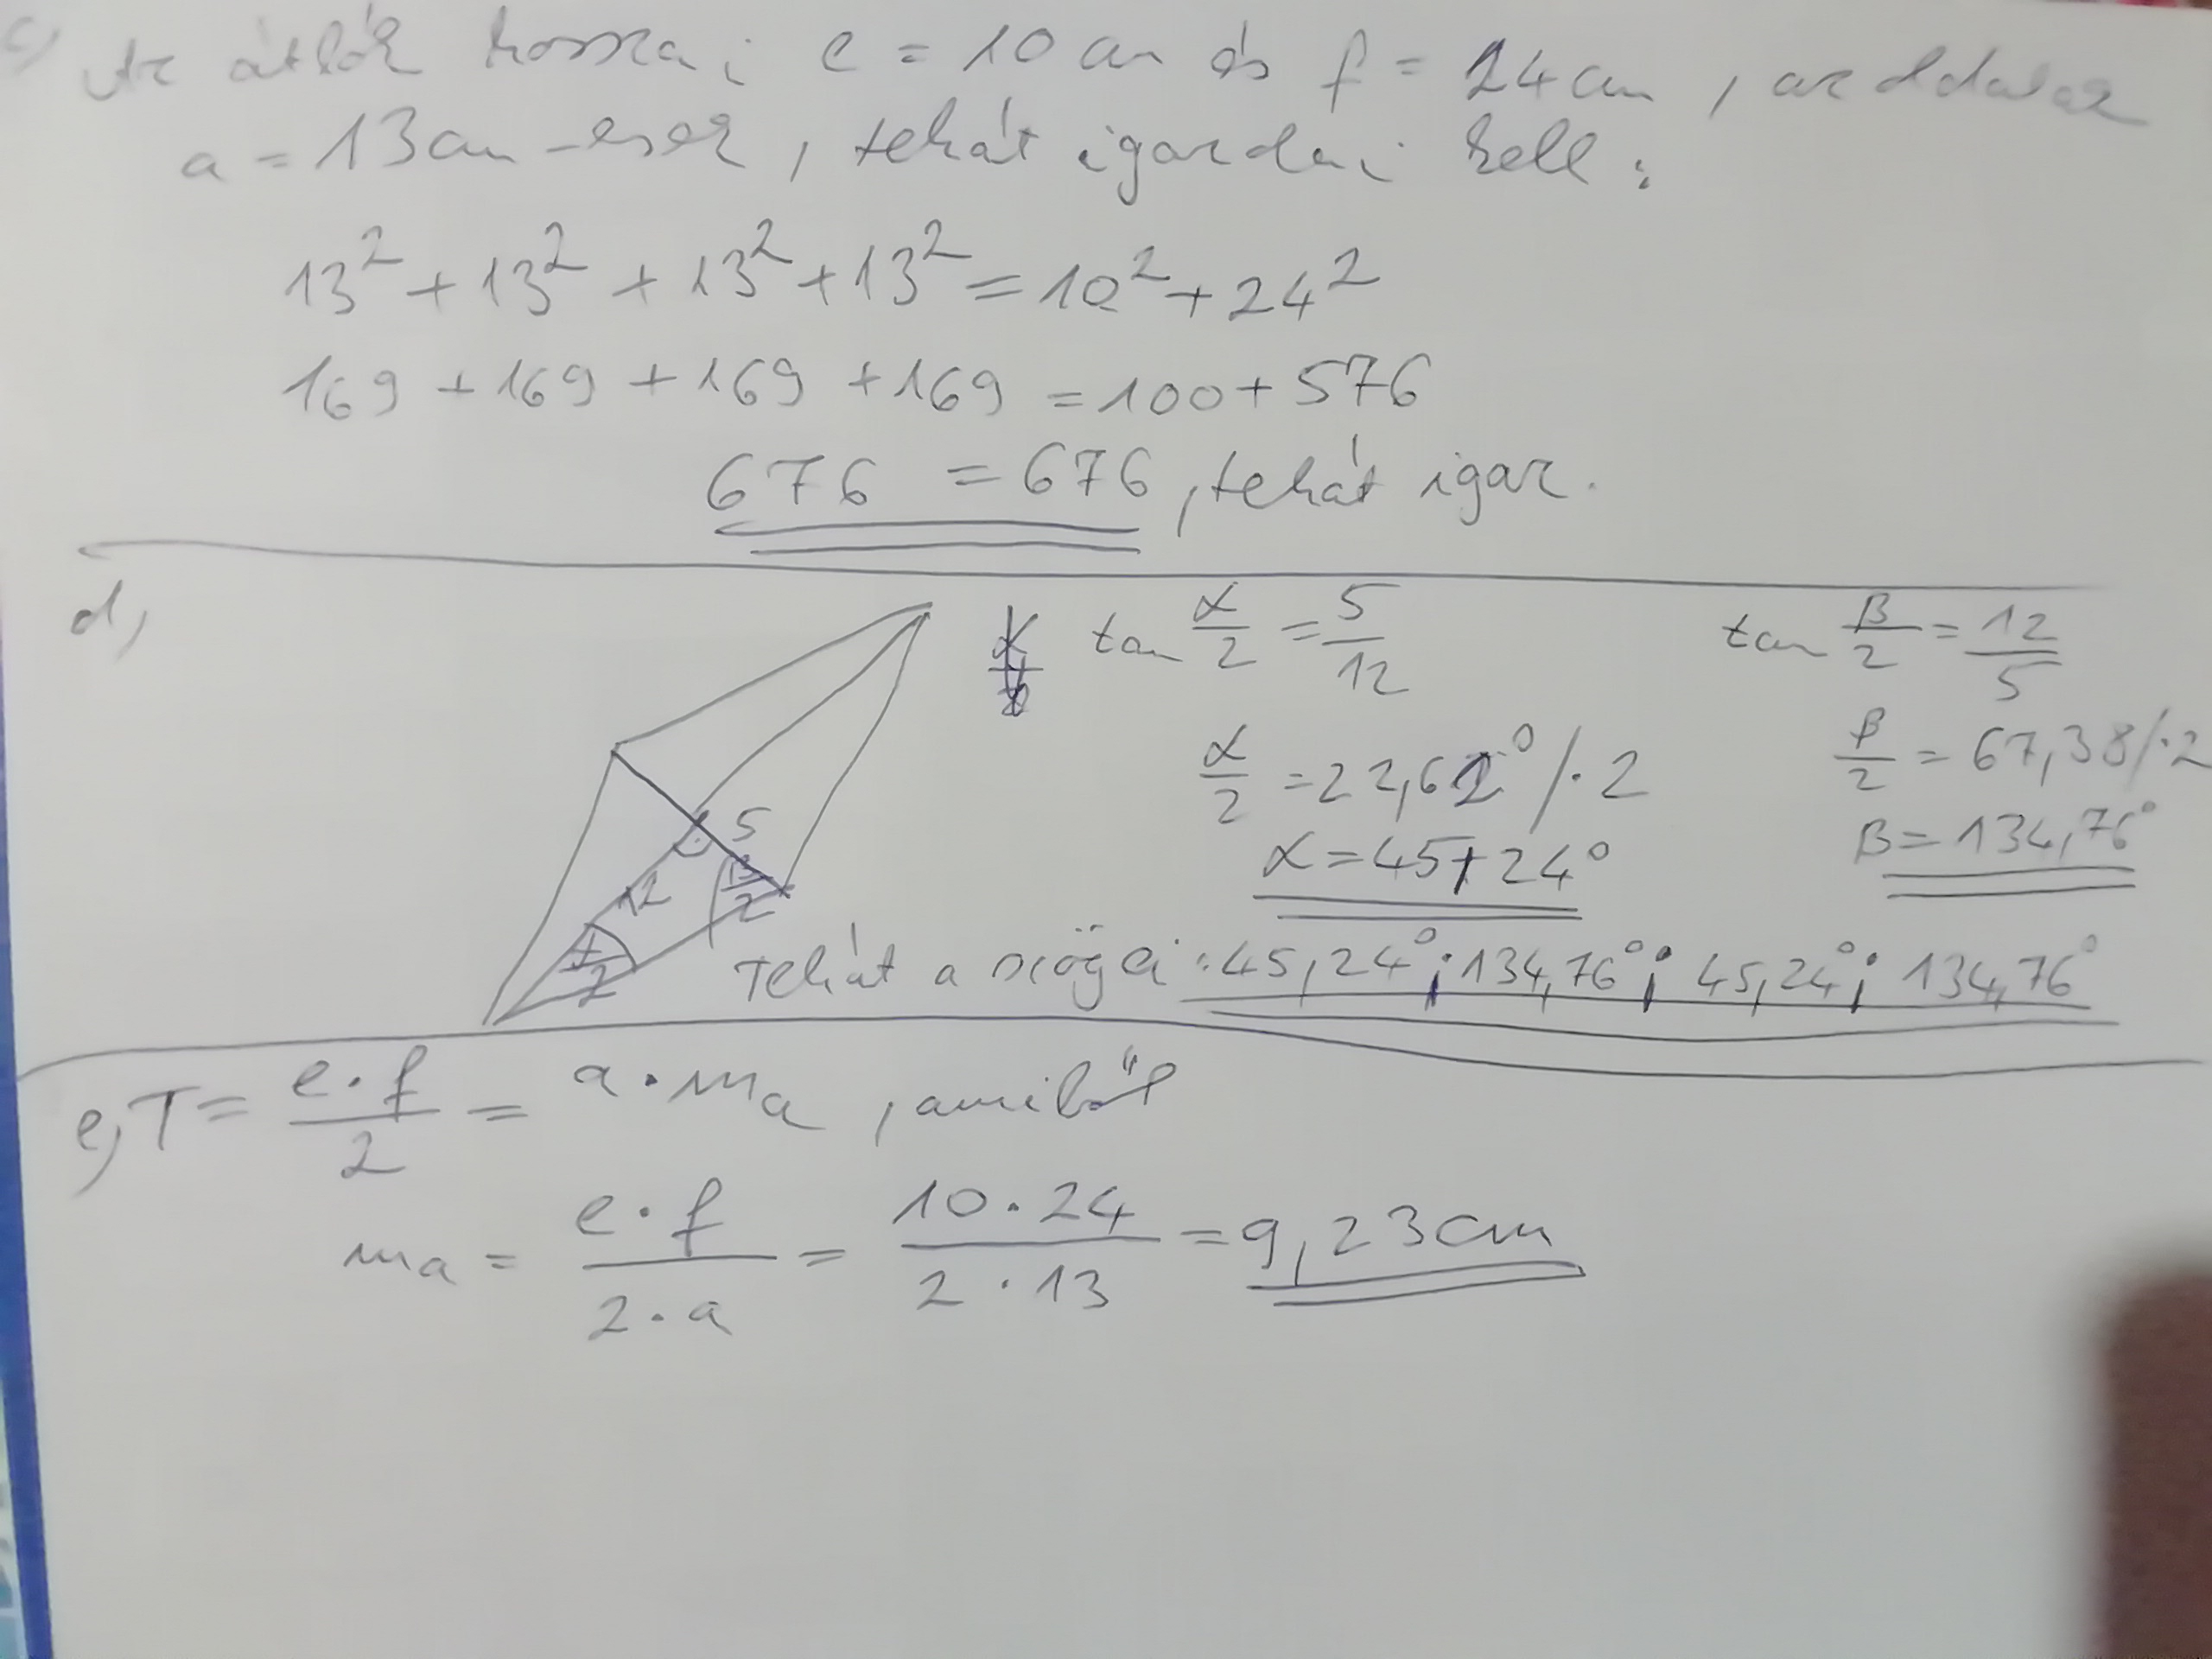 c) Az átlók hossza: e = 10 cm és f = 24 cm, az oldalak
a = 13 cm-esek, tehát igazolni kell:
13² + 13² + 13² + 13² = 10² + 24²
169 + 169 + 169 + 169 = 100 + 576
676 = 676, tehát igaz.
d,
tan α/2 = 5/12
tan β/2 = 12/5
α/2 = 22,62° /·2
β/2 = 67,38 /·2
α = 45,24°
β = 134,76°
5
12
β/2
α/2
Tehát a szögei: 45,24°; 134,76°; 45,24°; 134,76°
e, T = e·f/2 = a·ma, amiből
ma = e·f/2·a = 10·24/2·13 = 9,23 cm